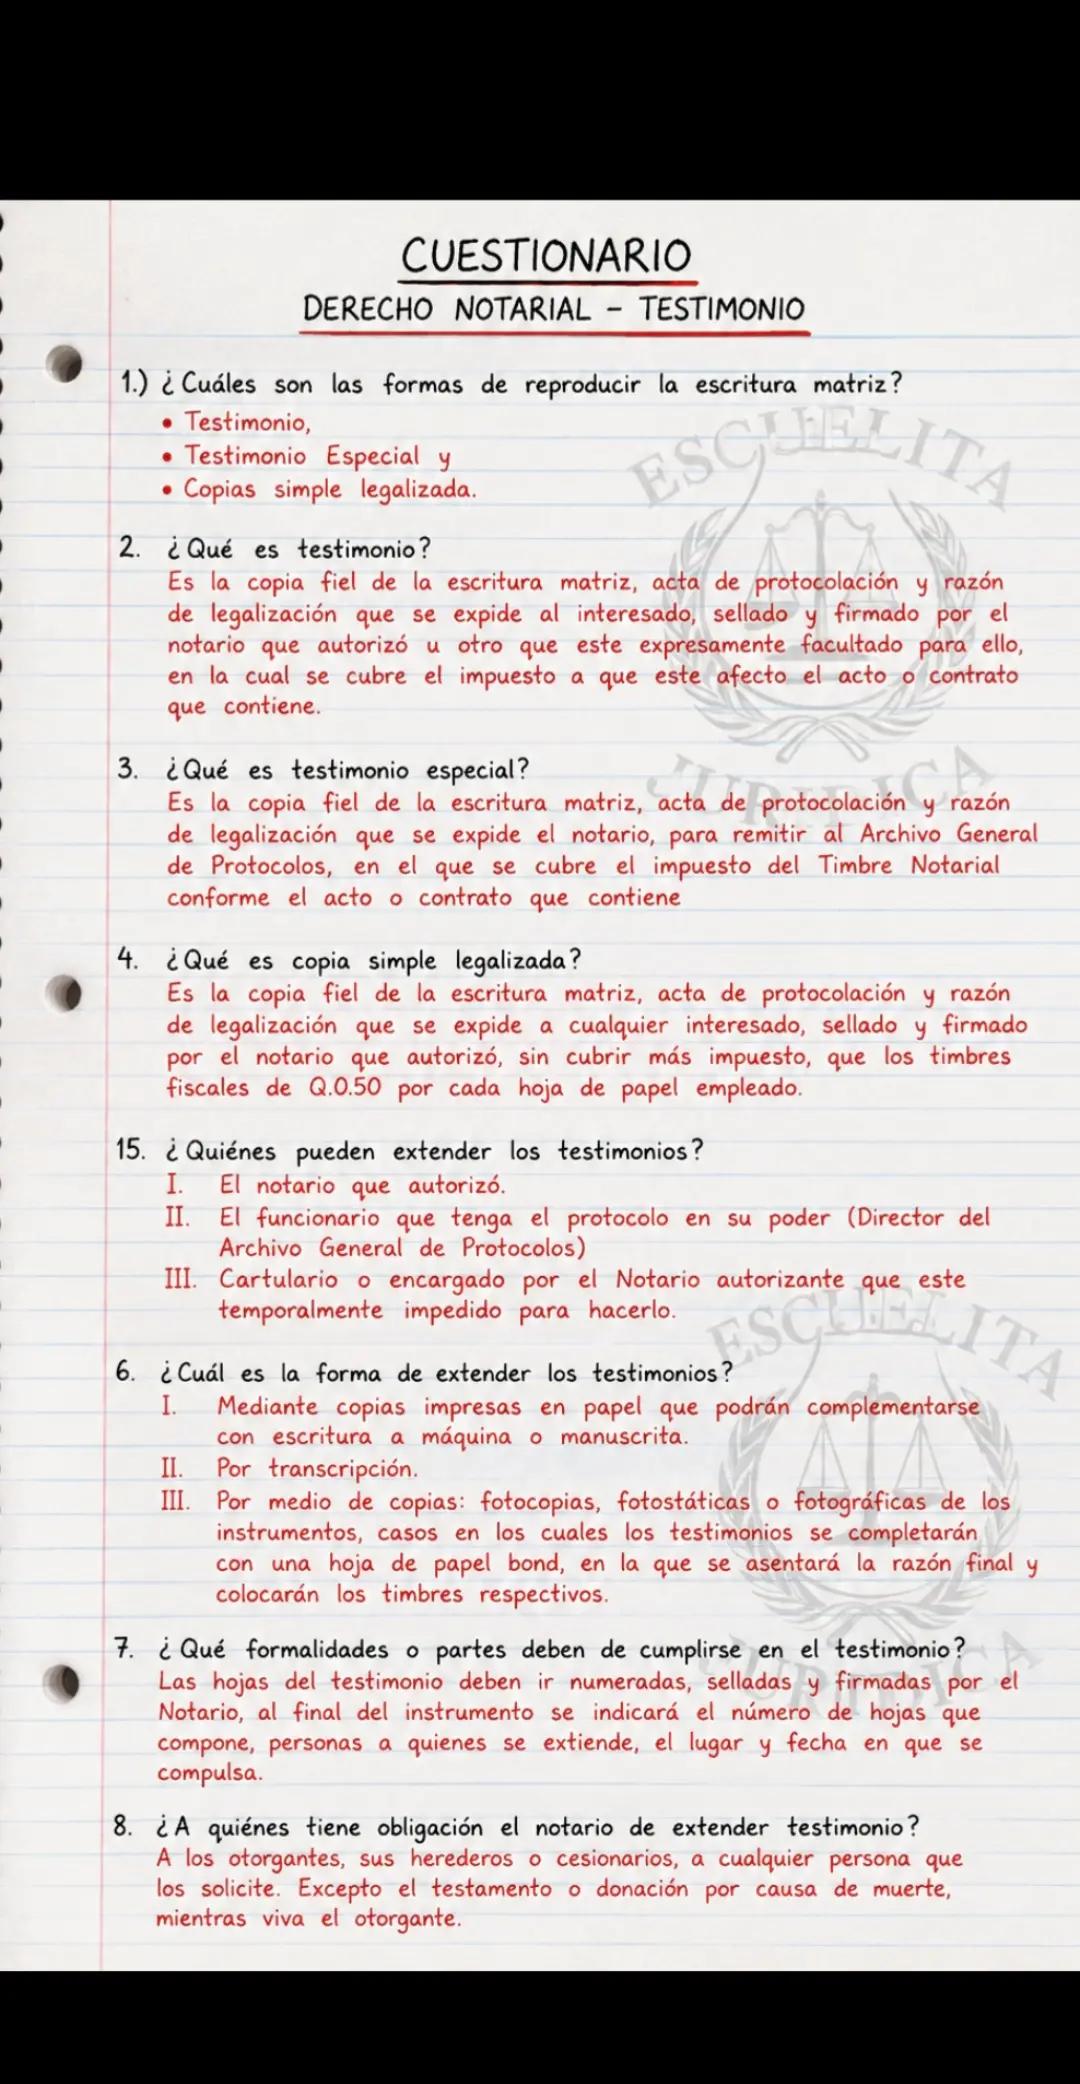 CUESTIONARIO
DERECHO NOTARIAL - TESTIMONIO
1.) ¿Cuáles son las formas de reproducir la escritura matriz?
• Testimonio,
• Testimonio Especial y
• Copias simple legalizada.
2. ¿Qué es testimonio?
Es la copia fiel de la escritura matriz, acta de protocolación y razón
de legalización que se expide al interesado, sellado y firmado por el
notario que autorizó u otro que este expresamente facultado para ello,
en la cual se cubre el impuesto a que este afecto el acto o contrato
que contiene.
3. ¿Qué es testimonio especial?
Es la copia fiel de la escritura matriz, acta de protocolación y razón
de legalización que se expide el notario, para remitir al Archivo General
de Protocolos, en el que se cubre el impuesto del Timbre Notarial
conforme el acto o contrato que contiene
4. ¿Qué es copia simple legalizada?
Es la copia fiel de la escritura matriz, acta de protocolación y razón
de legalización que se expide a cualquier interesado, sellado y firmado
por el notario que autorizó, sin cubrir más impuesto, que los timbres
fiscales de Q.0.50 por cada hoja de papel empleado.
15. ¿Quiénes pueden extender los testimonios?
I. El notario que autorizó.
II. El funcionario que tenga el protocolo en su poder (Director del
Archivo General de Protocolos)
III. Cartulario o encargado por el Notario autorizante que este
temporalmente impedido para hacerlo.
6. ¿Cuál es la forma de extender los testimonios?
I. Mediante copias impresas en papel que podrán complementarse
con escritura a máquina o manuscrita.
II. Por transcripción.
III. Por medio de copias: fotocopias, fotostáticas o fotográficas de los
instrumentos, casos en los cuales los testimonios se completarán
con una hoja de papel bond, en la que se asentará la razón final y
colocarán los timbres respectivos.
7. ¿Qué formalidades o partes deben de cumplirse en el testimonio?
Las hojas del testimonio deben ir numeradas, selladas y firmadas por el
Notario, al final del instrumento se indicará el número de hojas que
compone, personas a quienes se extiende, el lugar y fecha en que se
compulsa.
8. ¿A quiénes tiene obligación el notario de extender testimonio?
A los otorgantes, sus herederos o cesionarios, a cualquier persona que
los solicite. Excepto el testamento o donación por causa de muerte,
mientras viva el otorgante.
ESCUELITA
JURIDICA
ESCUELITA
JURIDICA